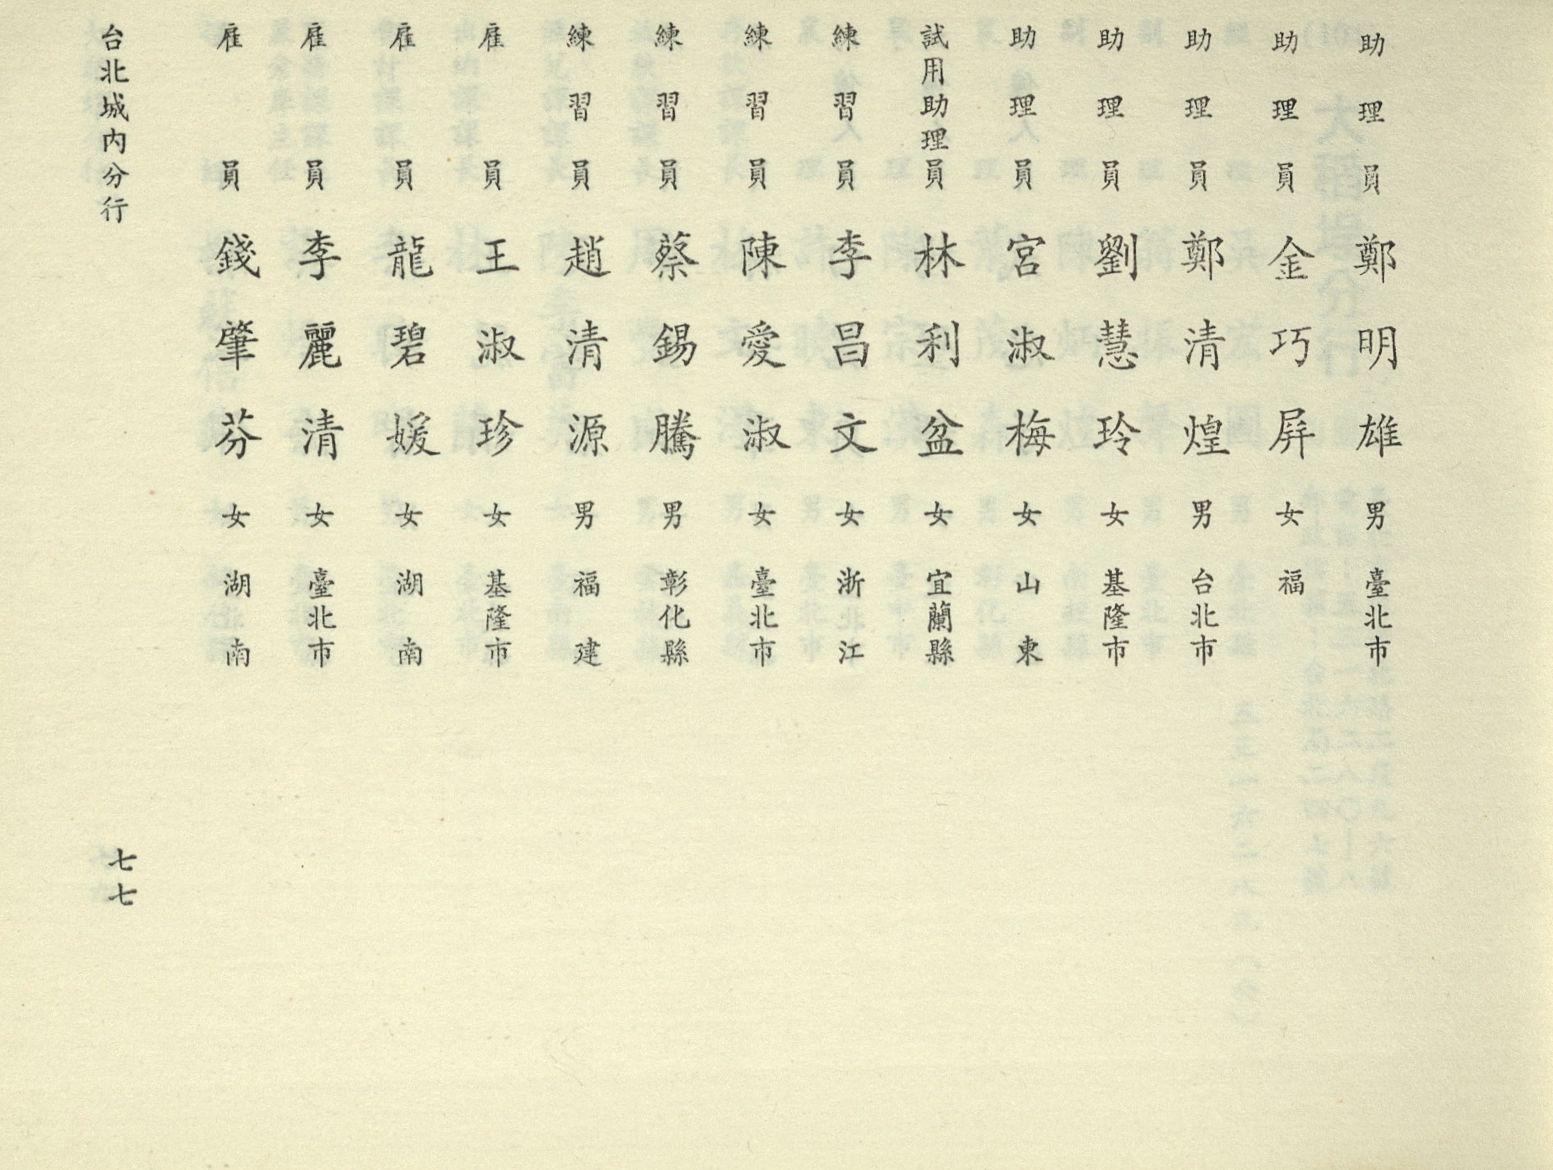 助理員 鄭明雄 男 臺北市
助理員 金巧屏 女 福
助理員 鄭清煌 男 台北市
助理員 劉慧玲 女 基隆市
助理員 宮淑梅 女 山東
試用助理員 林利盆 女 宜蘭縣
練習員 李昌文 女 浙江
練習員 陳愛淑 女 臺北市
練習員 蔡錫騰 男 彰化縣
練習員 趙清源 男 福建
雇員 王淑珍 女 基隆市
雇員 龍碧媛 女 湖南
雇員 李麗清 女 臺北市
雇員 錢肇芬 女 湖南
台北城內分行
七七